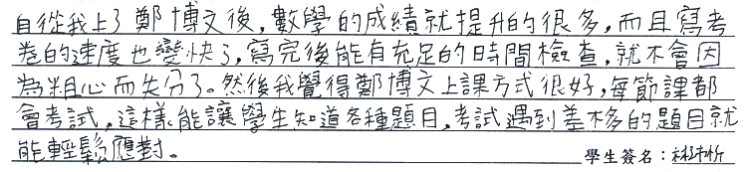 自從我上了鄭博文後,數學的成績就提升的很多,而且寫考
卷的速度也變快了,寫完後能有充足的時間檢查,就不會因
為粗心而失分了。然後我覺得鄭博文上課方式很好,每節課都
會考試,這樣能讓學生知道各種題目,考試遇到差不多的題目就
能輕鬆應對。
學生簽名: